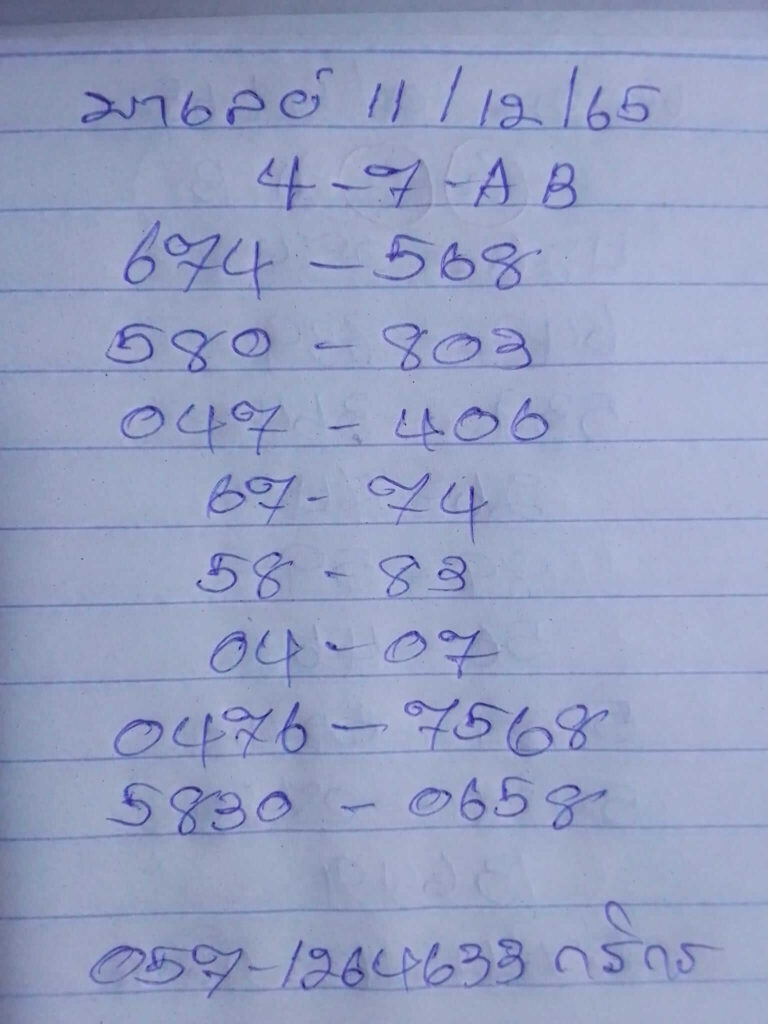 มาเลย์ 11/12/65
4-7-AB
674-568
580-803
047-406
67-74
58-83
04-07
0476-7568
5830-0658
057-1264633